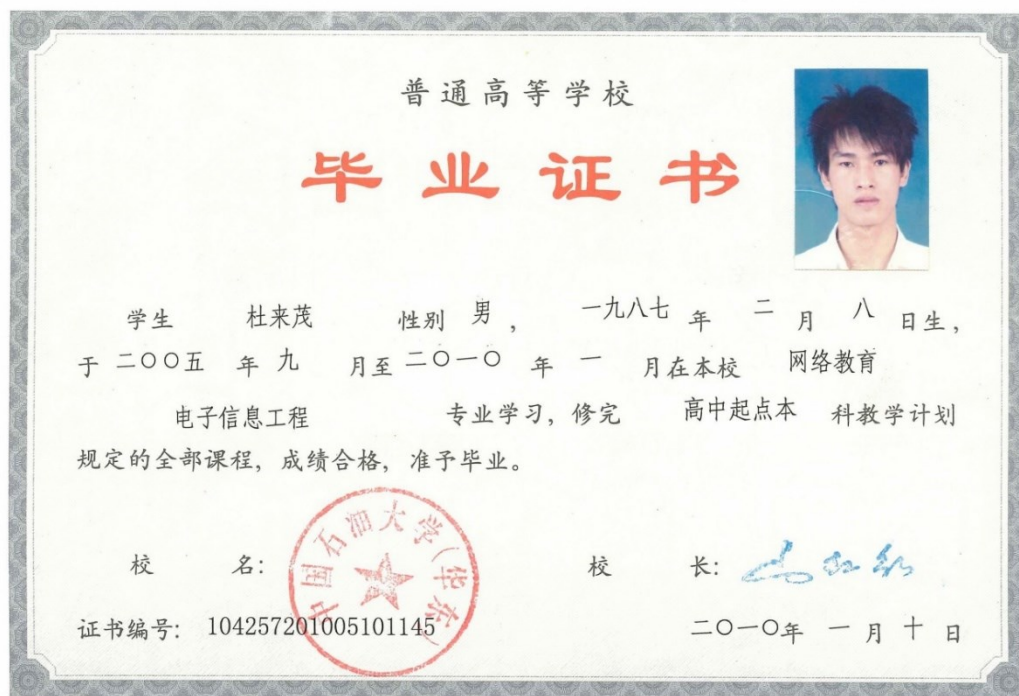 普通高等学校
毕业证书
学生 杜来茂 性别 男， 一九八七 年 二 月 八 日生，
于 二〇〇五 年 九 月至 二〇一〇 年 一 月在本校 网络教育
电子信息工程 专业学习，修完 高中起点本 科教学计划
规定的全部课程，成绩合格，准予毕业。
校 名：
中国石油大学（华东）
校 长：
证书编号：104257201005101145
二〇一〇年 一 月 十 日